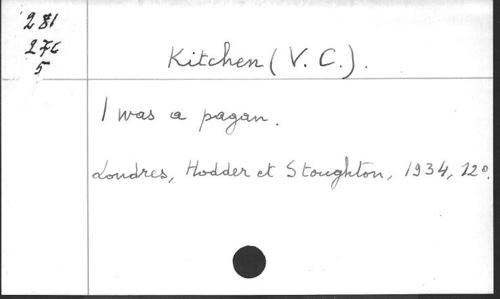 281
276
5
Kitchen (V. C.).
I was a pagan.
Londres, Hodder et Stoughton, 1934, 12°.